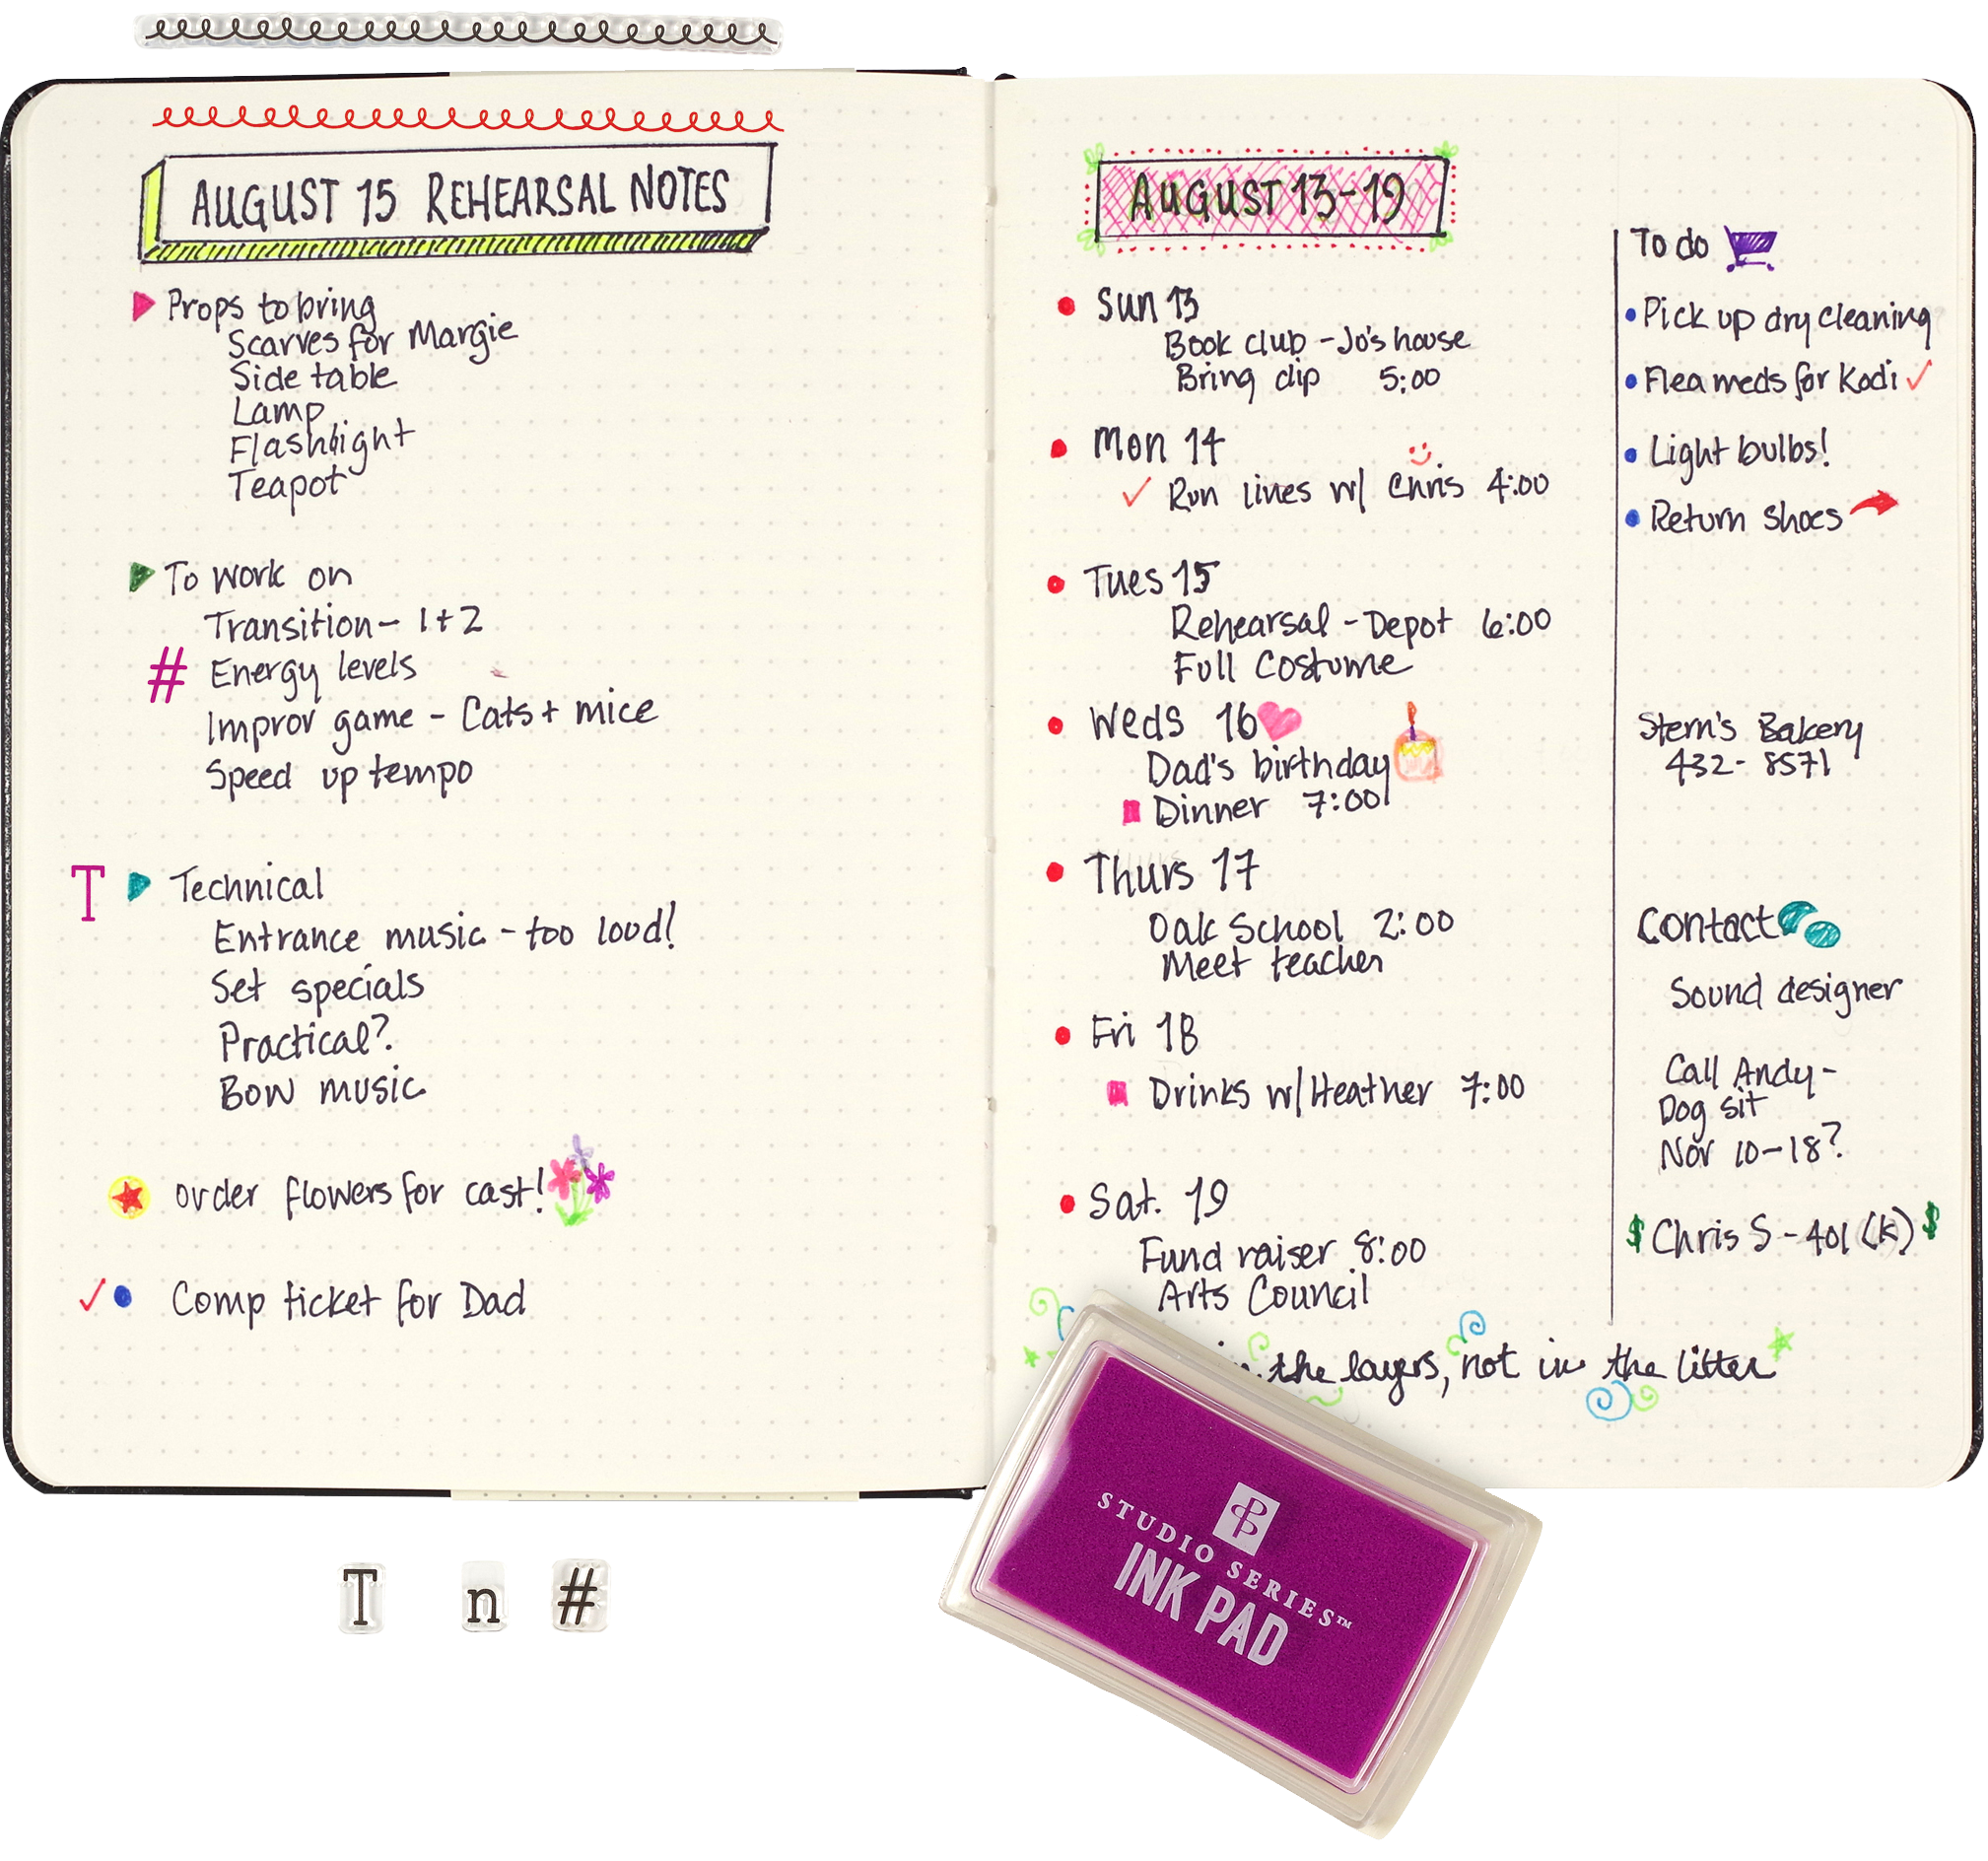 AUGUST 15 REHEARSAL NOTES
Props to bring
Scarves for Margie
Side table
Lamp
Flashlight
Teapot
To work on
Transition - 1 + 2
# Energy levels
Improv game - Cats + mice
Speed up tempo
T Technical
Entrance music - too loud!
Set specials
Practical?
Bow music
order flowers for cast!
✓ Comp ticket for Dad
AUGUST 13-19
Sun 13
Book club - Jo's house
Bring dip 5:00
Mon 14
✓ Run lines w/ Chris 4:00
Tues 15
Rehearsal - Depot 6:00
Full Costume
Weds 16
Dad's birthday
Dinner 7:00
Thurs 17
Oak School 2:00
Meet teacher
Fri 18
Drinks w/ Heather 7:00
Sat. 19
Fund raiser 8:00
Arts Council
in the layers, not in the litter
To do
Pick up dry cleaning
Flea meds for Kodi ✓
Light bulbs!
Return shoes
Stern's Bakery
432-8571
Contact
Sound designer
Call Andy -
Dog sit
Nov 10-18?
$ Chris S - 401 (K) $
T n #
STUDIO SERIES™
INK PAD